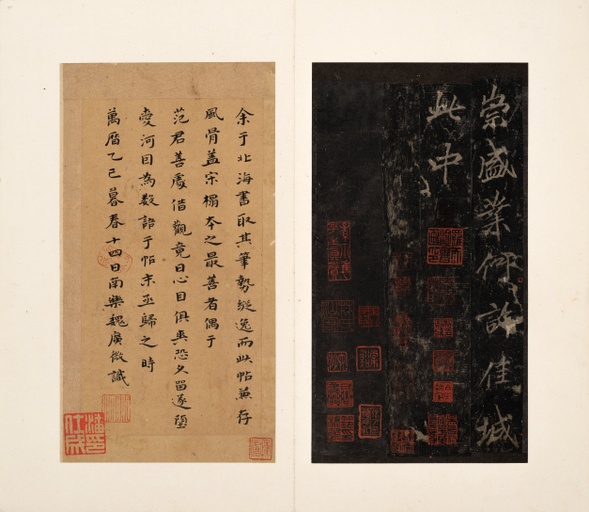 崇盛業何許佳城
此中
余于北海書取其筆勢縱逸而此帖兼存
風骨蓋宋榻本之最善者偶于
范君善處借觀竟日心目俱爽恐久留遂墮
愛河因為數語于帖末亟歸之時
萬曆乙巳暮春十四日南樂魏廣微識